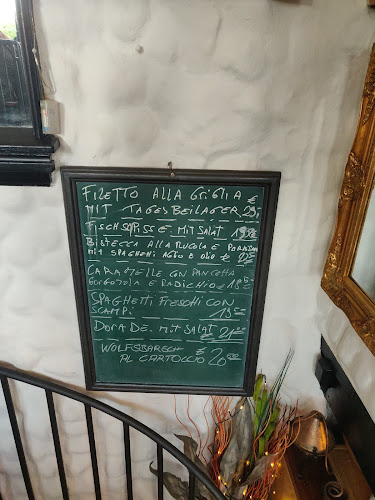 FILETTO ALLA GRIGLIA
MIT TAGESBEILAGEN €
FISCHSPIESSE MIT SALAT
BISTECCA ALLA RUCOLA E PARMESAN
MIT SPAGHETTI AGLIO E OLIO €
CARAMELLE CON PANCETTA
GORGONZOLA E RADICHIO €
SPAGHETTI FRESCHI CON
SCAMPI
DORADE MIT SALAT
€
WOLFSBARSCH
AL CARTOCCIO €